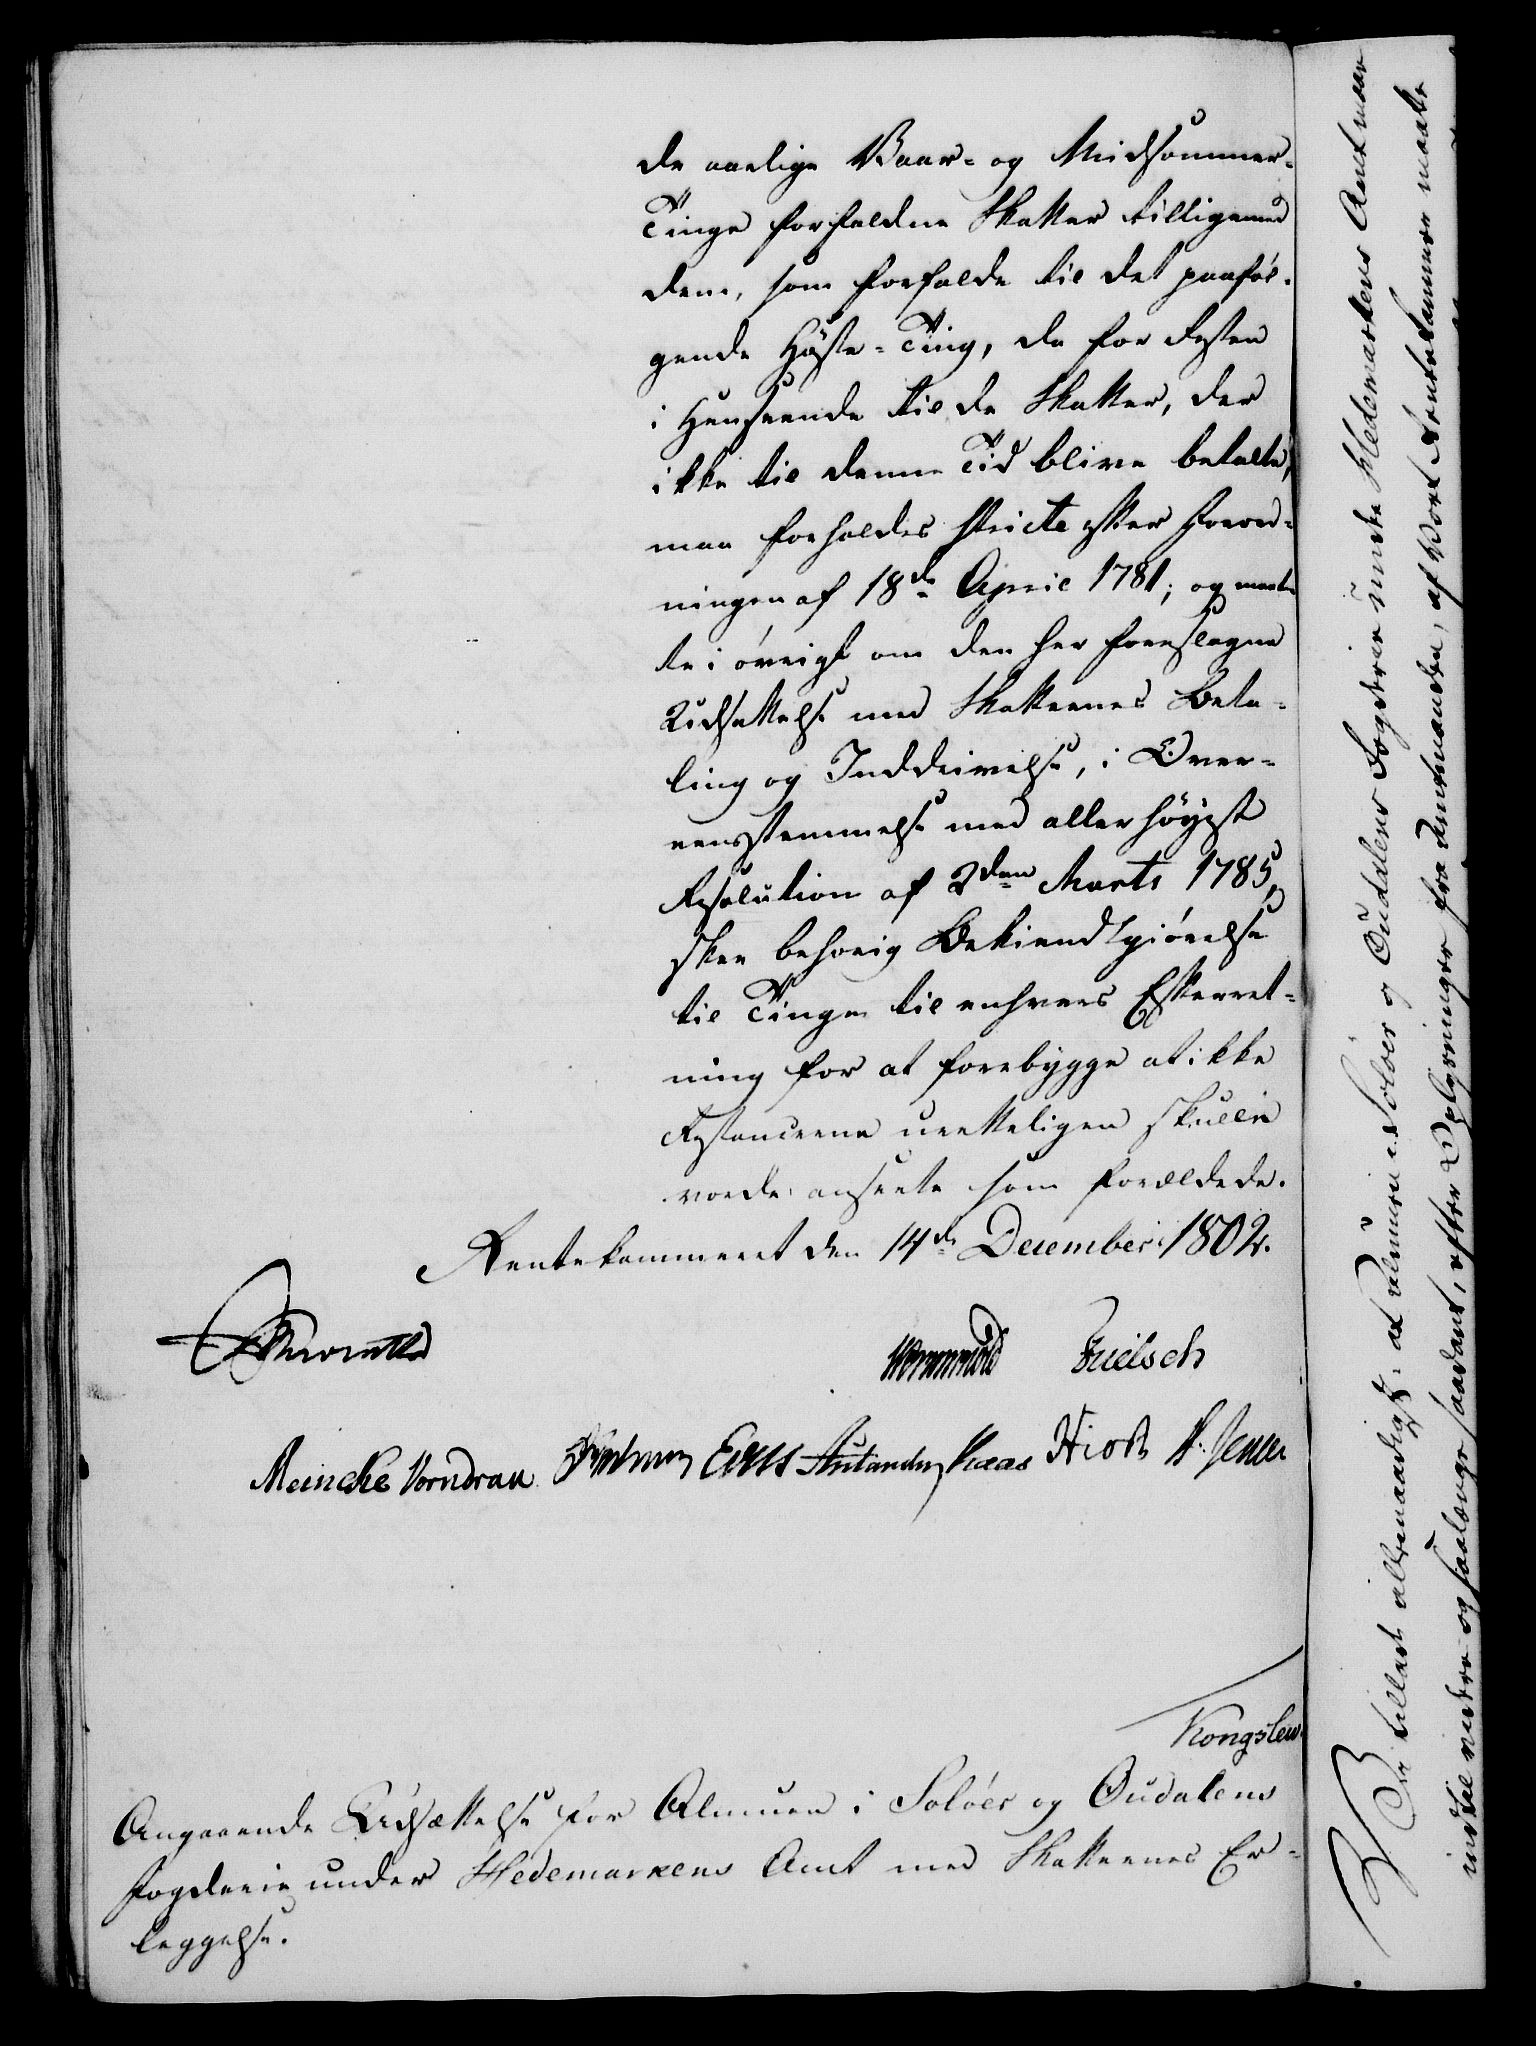 de aarlige Vaar- og Midsommer-
Tinge forfaldne Skatter tilligemed
dem, som forfalde til det paaføl-
gende Høste-Ting, da for Resten
i Henseende til de Skatter, der
ikke til denne Tid blive betalte,
maa forholdes stricte efter Forord-
ningen af 18de April 1781; og maat-
te i øvrigt om den her foreslagne
Udsættelse med Skatternes Beta-
ling og Inddrivelse, i Over-
eensstemmelse med allerhøyest
Resolution af 2den Marts 1785,
skee behørig Bekiendtgiørelse
til Tinge til enhvers Efterret-
ning for at forebygge at ikke
Restancerne uretteligen skulle
vorde ansette som forældede.
Rentekammeret den 14de December 1802.
Wormskiold
Meincke Vorndran Kaas Hiort
Kongslew
Angaaende Udsættelse for Almuen i Soløer og Oudalens
Fogderie under Hedemarkens Amt med Skatternes Er-
leggelse.
Vi tillade allernaadigst: at Almuen i Soløer og Oudalens Fogderie under Hedemarkens Amt maae
indtil videre og saalænge saadant, efter Oplysninger fra Amtmanden, af Vort Rentekammer maatte